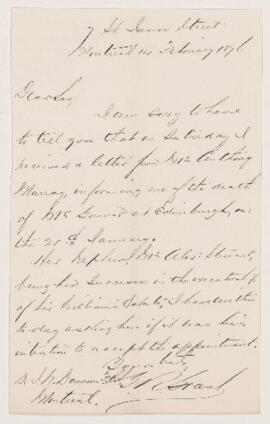 7 St James Street
Montreal 14 February 1876
Dear Sir
I am sorry to have
to tell you that on Saturday I
received a letter from Mr Anthony
Murray, informing me of the death
of Mr at Edinburgh, on
the 25th January.
His Nephew, Mr Alexr Stewart,
being his Successor in the
of his Estate, I have written
to day asking him if it was his
intention to accept the appointment.
Yours truly
Montreal.